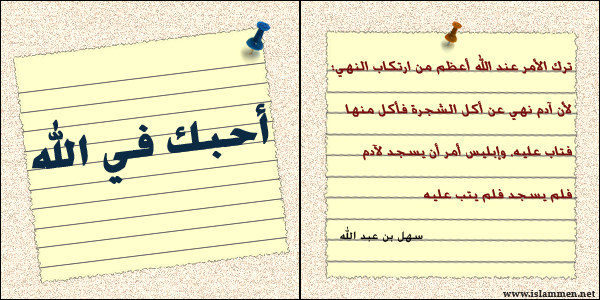 ترك الأمر عند الله أعظم من ارتكاب النهي؛
لأن آدم نهي عن أكل الشجرة فأكل منها
فتاب عليه، وإبليس أمر أن يسجد لآدم
فلم يسجد فلم يتب عليه
سهل بن عبد الله
أحبك في الله
www.islammen.net